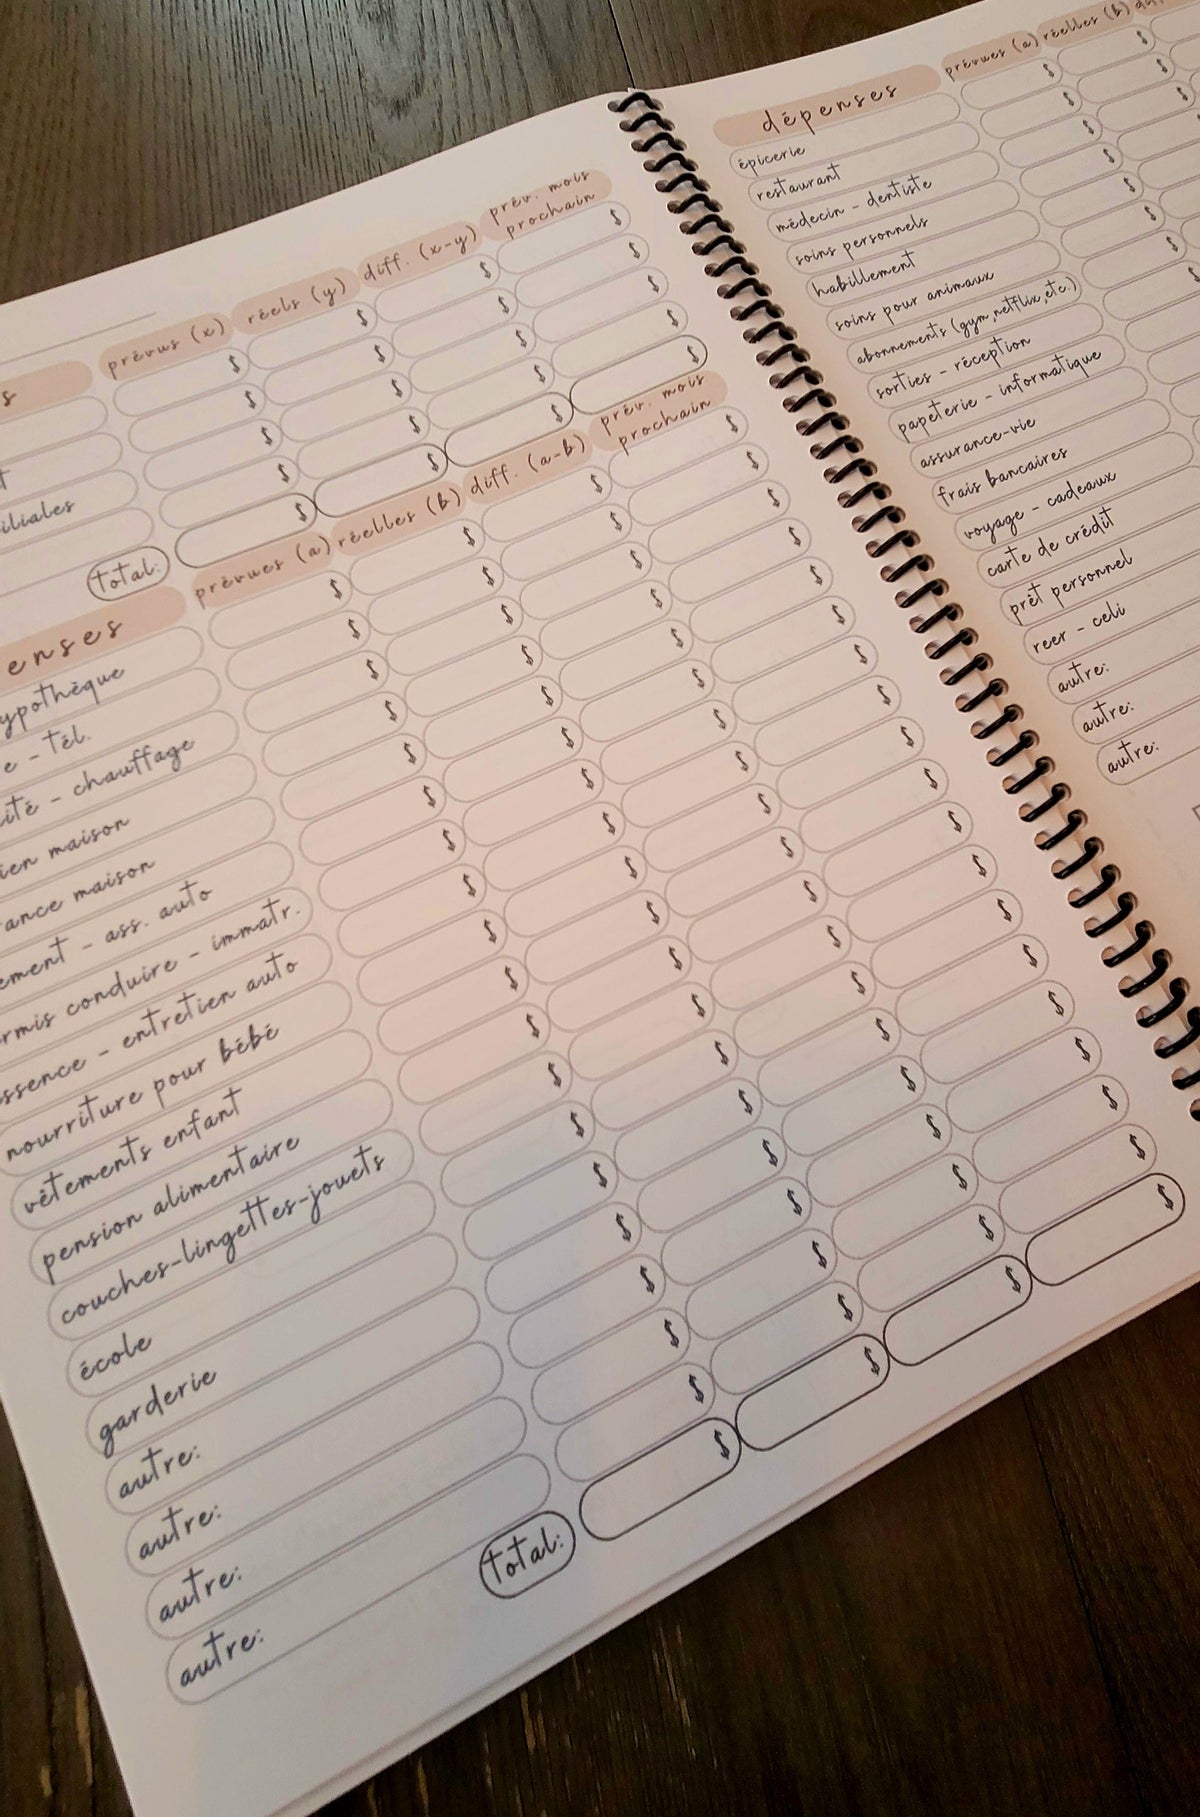 prévus (x) réels (y) diff. (x-y) prév. mois prochain
$ $ $ $
$ $ $ $
$ $ $ $
$ $ $ $
total: $ $ $ $
prévues (a) réelles (b) diff. (a-b) prév. mois prochain
$ $ $ $
- tél. $ $ $ $
- chauffage $ $ $ $
maison $ $ $ $
maison $ $ $ $
- ass. auto $ $ $ $
conduire - immatr. $ $ $ $
- entretien auto $ $ $ $
nourriture pour bébé $ $ $ $
vêtements enfant $ $ $ $
pension alimentaire $ $ $ $
couches-lingettes-jouets $ $ $ $
école $ $ $ $
garderie $ $ $ $
autre: $ $ $ $
autre: $ $ $ $
autre: $ $ $ $
autre: $ $ $ $
total: $ $ $ $
dépenses prévues (a) réelles (b)
épicerie $ $
restaurant $ $
médecin - dentiste $ $
soins personnels $ $
habillement $ $
soins pour animaux $ $
abonnements (gym, netflix, etc.)
sorties - réception
papeterie - informatique
assurance-vie
frais bancaires
voyage - cadeaux
carte de crédit
prêt personnel
reer - celi
autre:
autre:
autre: